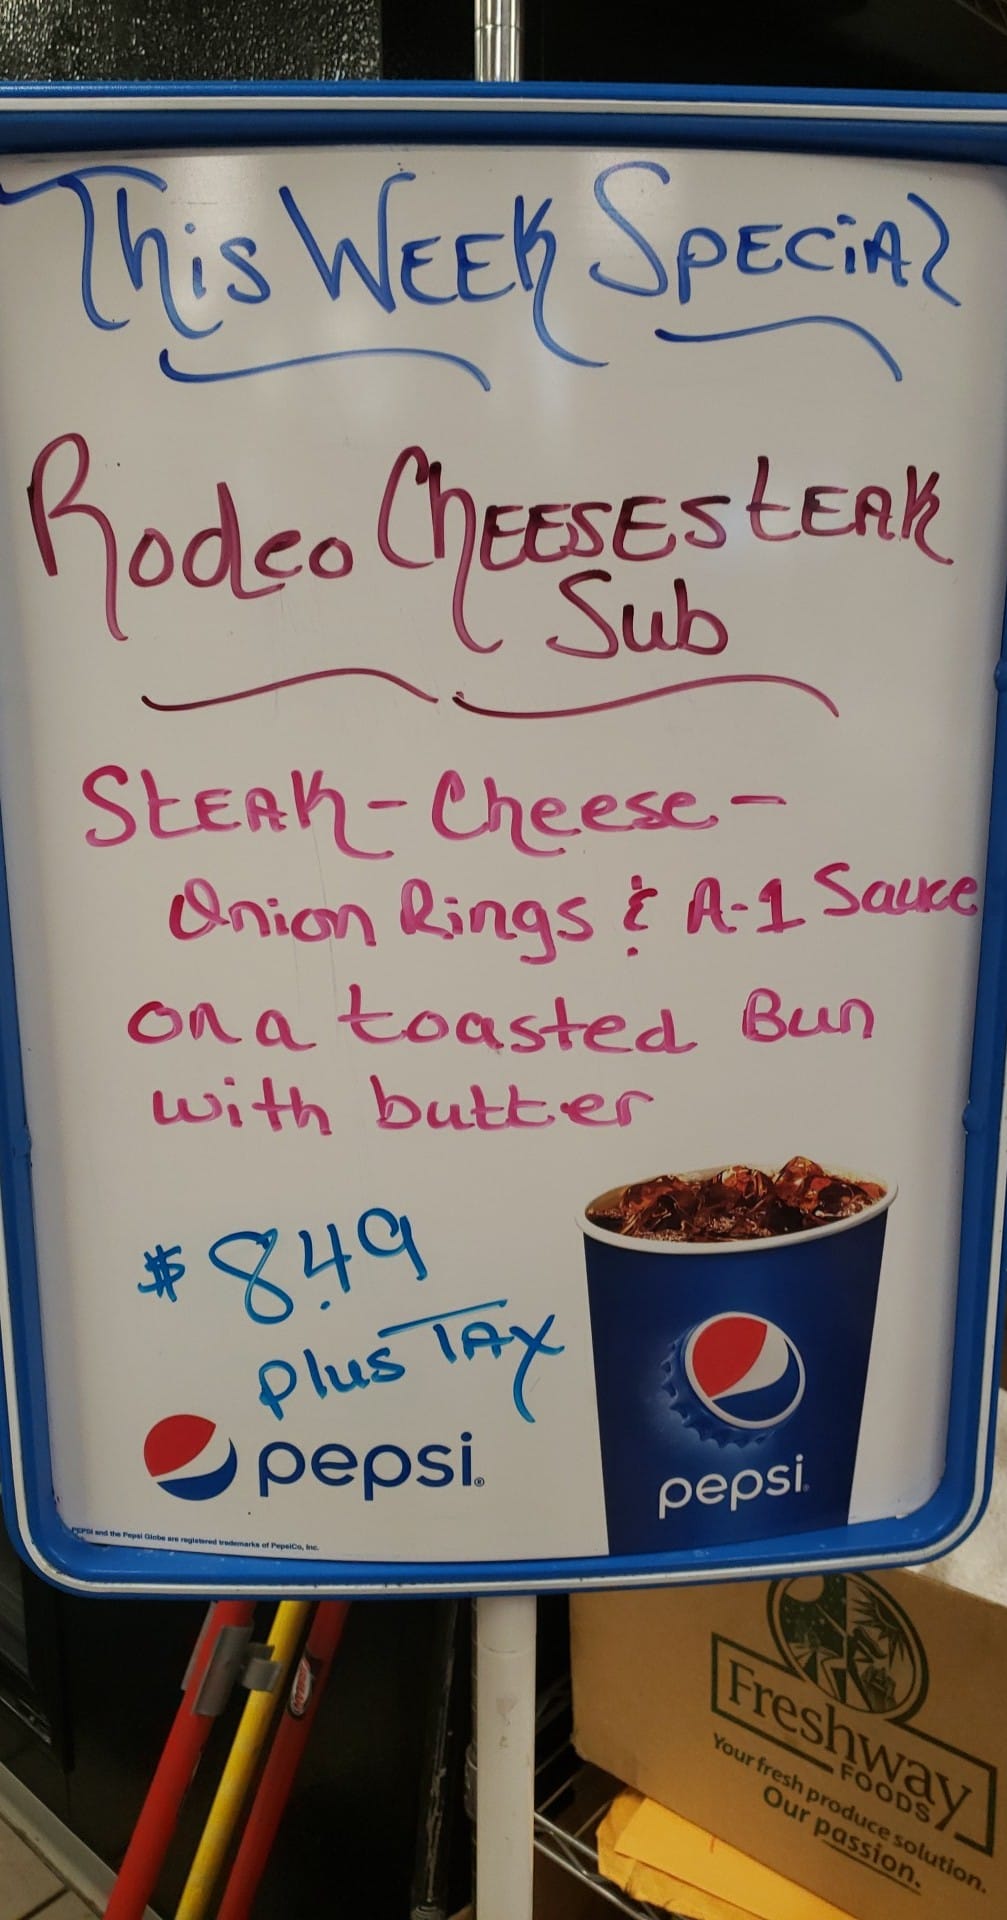 This WEEK SPECiAL
Rodeo CHEESESTEAK
Sub
STEAK - Cheese -
Onion Rings & A-1 Sauce
on a toasted Bun
with butter
$8.49
plus TAX
pepsi
pepsi
PEPSI and the Pepsi Globe are registered trademarks of PepsiCo, Inc.
Freshway
FOODS
Your fresh produce solution.
Our passion.